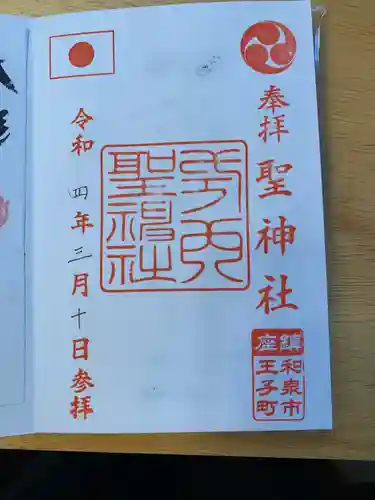 奉拝
聖神社
鎮座
和泉市
王子町
令和四年三月十日参拝